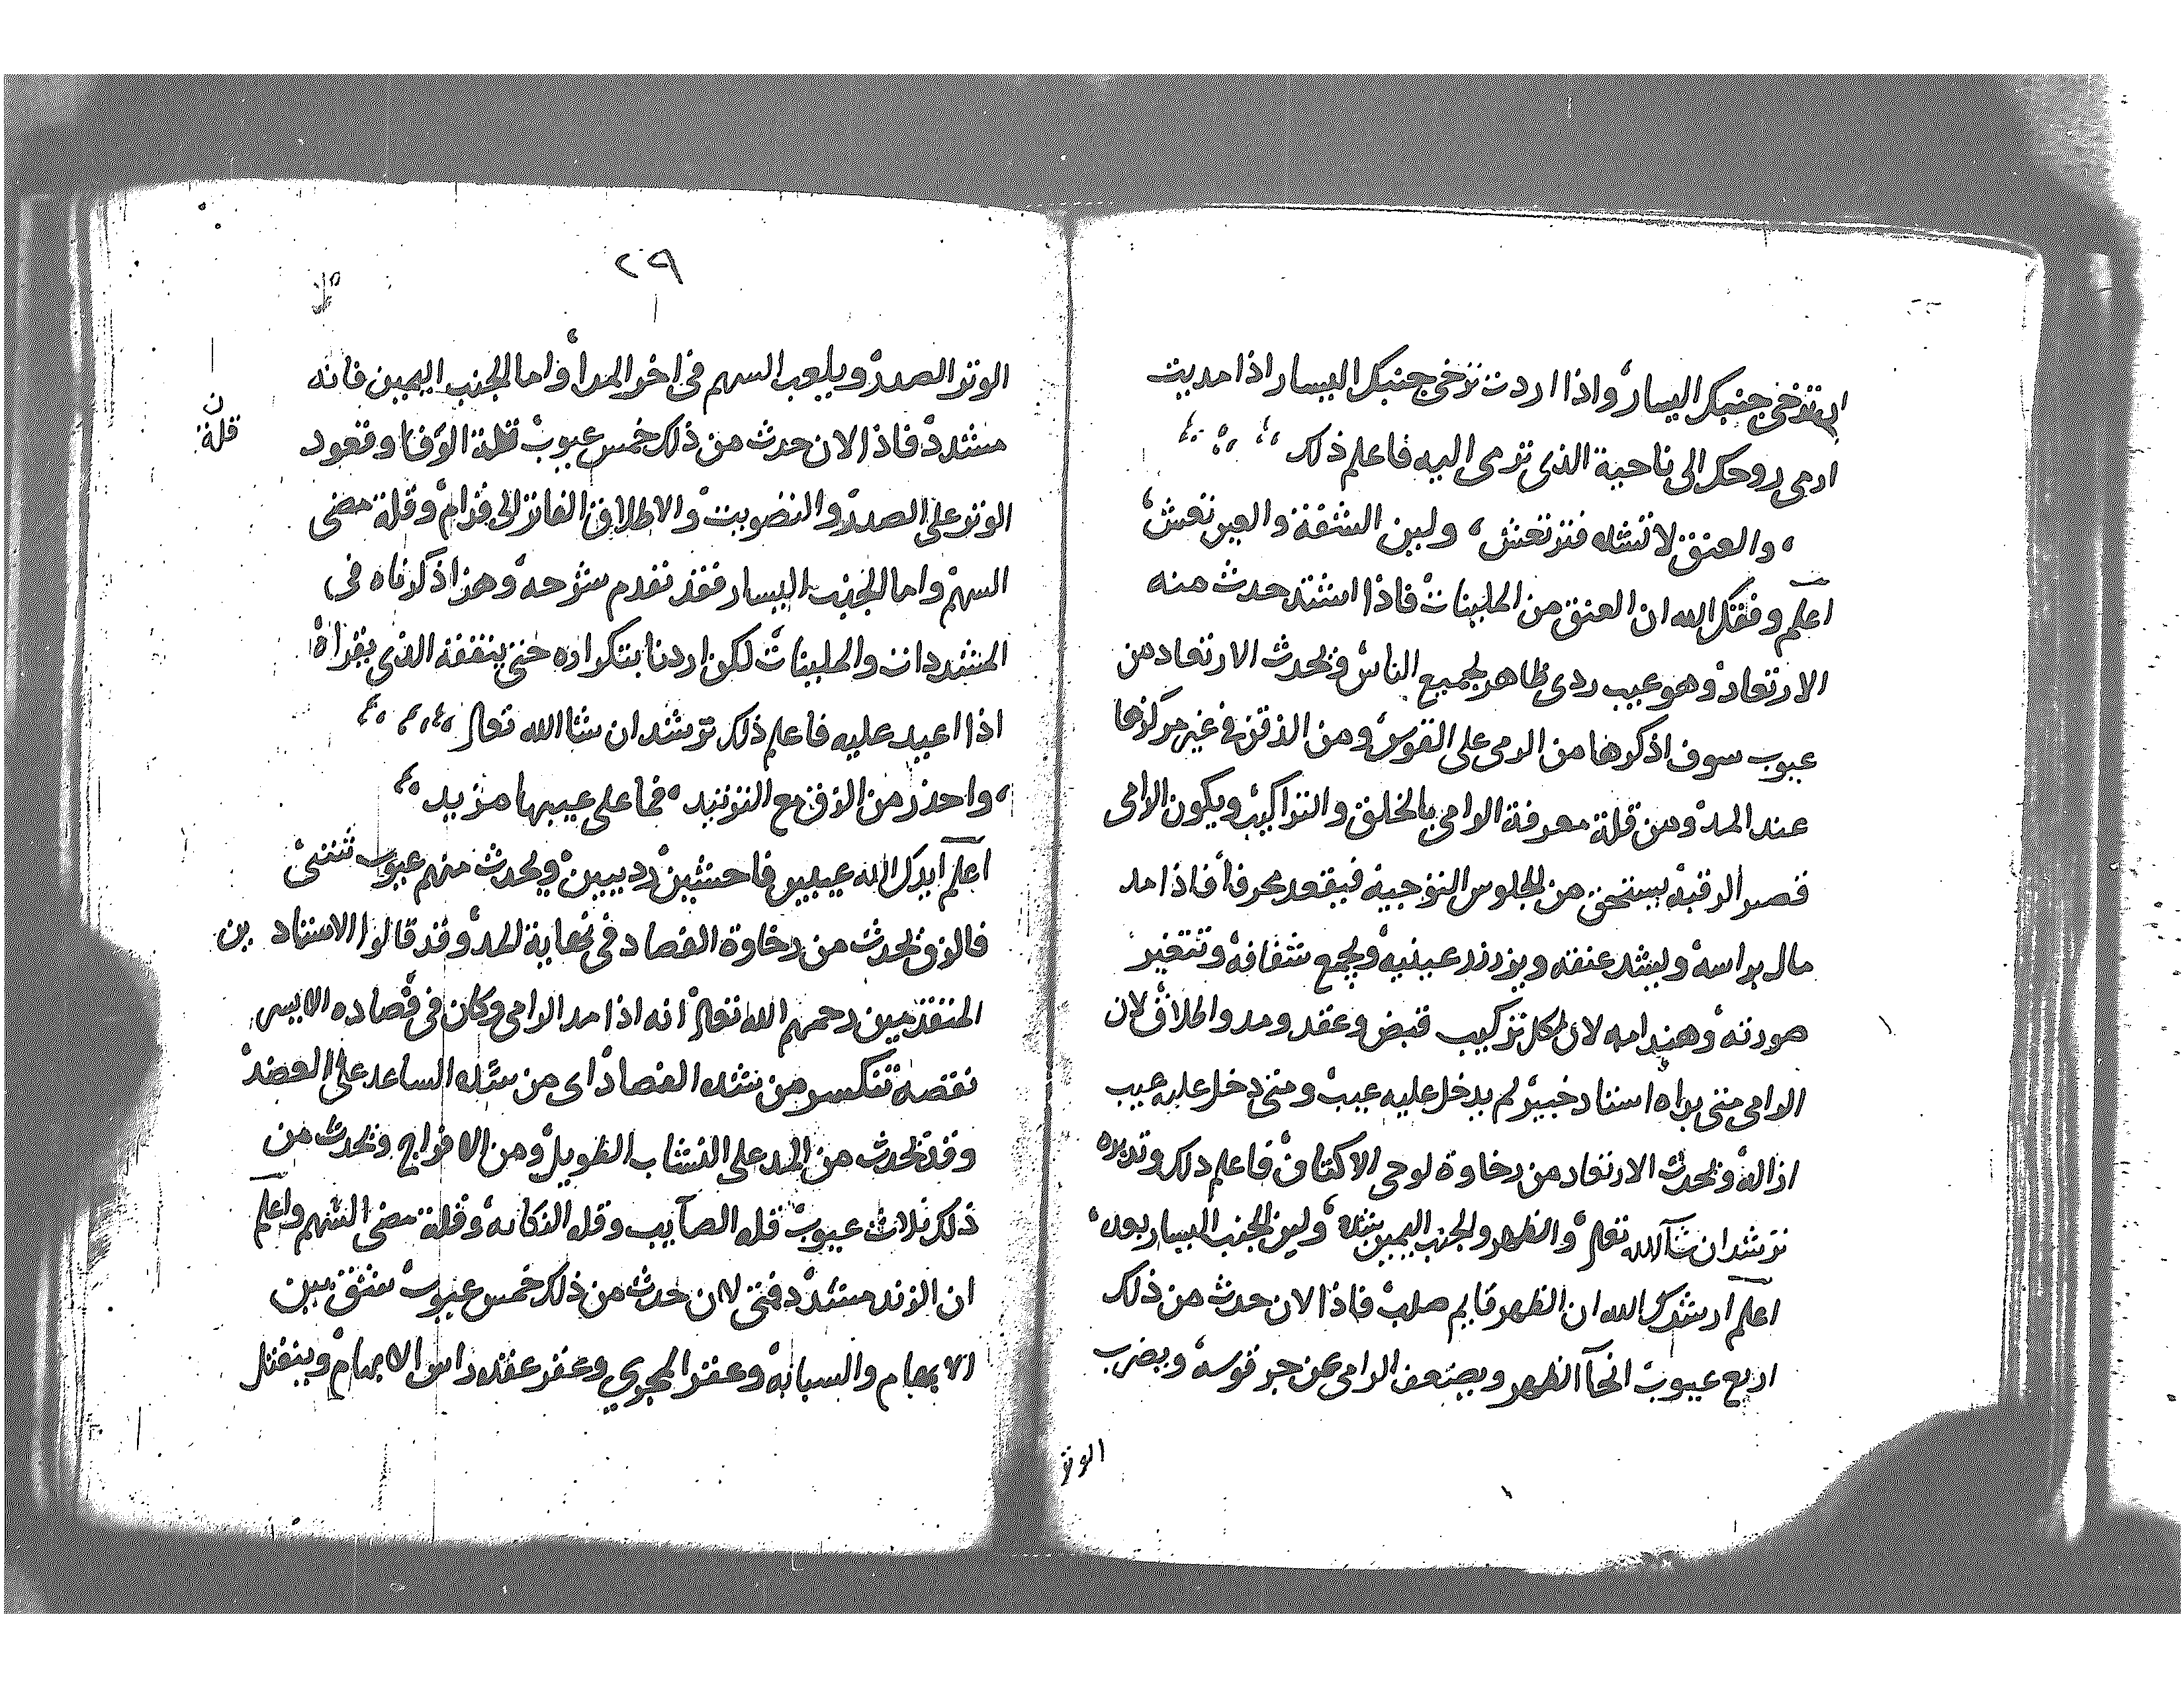 ان ترخي جنبك اليسار واذا اردت ترخي جنبك اليسار اذا مديت
ارمي روحك الى ناحية الذي ترمى اليه فاعلم ذلك
والعنق لا تشده فترتعش ولين الشفة والعين تغش
اعلم وفقك الله ان العنق من الملينات فاذا اشتد حدث منه
الارتعاد وهو عيب ردى ظاهر لجميع الناس ويحدث الارتعاد من
عيوب سوف اذكرها من الرمى على القوس ومن الذقن في غير مركزها
عند المد ومن قلة معرفة الرامى بالخلق والتراكيب ويكون الرامى
قصير الرقبة يستحق من الجلوس التوجيه فيقعد محرفا فاذا مد
مال براسه ويشد عنقه ويزرزر عينيه ويجمع شفافه وتتغير
صورته وهندامه لان لكل تركيب قبض وعقد ومد واطلاق لان
الرامى متى يراه استاد خبير لم يدخل عليه عيب ومتى دخل عليه عيب
ازاله ويحدث الارتعاد من رخاوة لوحى الاكتاف فاعلم دلك وتدبره
ترشد ان شآ الله تعالى والظهر والجنب اليمين شده ولين الجنب اليسار
اعلم ارشدك الله ان الظهر قايم صلب فاذا الان حدث من ذلك
اربع عيوب انحآ الظهر ويضعف الرامى عن جر قوسه ويضرب
الوتر
٢٩
الوتر الصدر ويلعب السهم فى اخر المدا واما الجنب اليمين فانه
مشدد فاذا الان حدث من ذلك خمس عيوب قلة الوفا وقعود
ن
قلة
الوتر على الصدر والتضويت والاطلاق الفاتر الى قدام وقلة مضى
السهم واما الجنب اليسار فقد تقدم شرحه وهذا ذكرناه فى
المشددات والملينات لكن اردنا بتكراره حتى يتفقه الذى يقراه
اذا اعيد عليه فاعلم ذلك ترشد ان شا الله تعالى
واحذر من الزق مع التزنيد فما على عيبها مزيد
اعلم ايدك الله عيبين فاحشين رديين ويحدث منهم عيوب شتى
فالزق يحدث من رخاوة الفصاد فى نهاية المد وقد قالوا الاستادين
المتقدمين رحمهم الله تعالى انه اذا مد الرامى وكان فى فصاده الايسر
نقصه تنكسر من شده الفصاد اى من شده الساعد على العضد
وقد تحدث من المد على النشاب الطويل ومن الافراج ويحدث من
ذلك ثلاث عيوب قله الصآيب وقله النكايه وقلة مضى السهم واعلم
ان الزند مشدد فمتى لان حدث من ذلك خمس عيوب شتق بين
الابهام والسبابه وعقر المجري وعقر عقده راس الابهام وينفتل